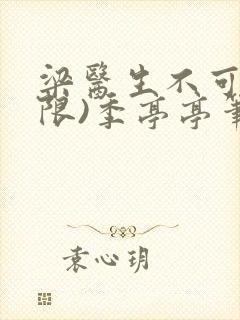 梁医生不可
限)季亭亭笔
袁心玥